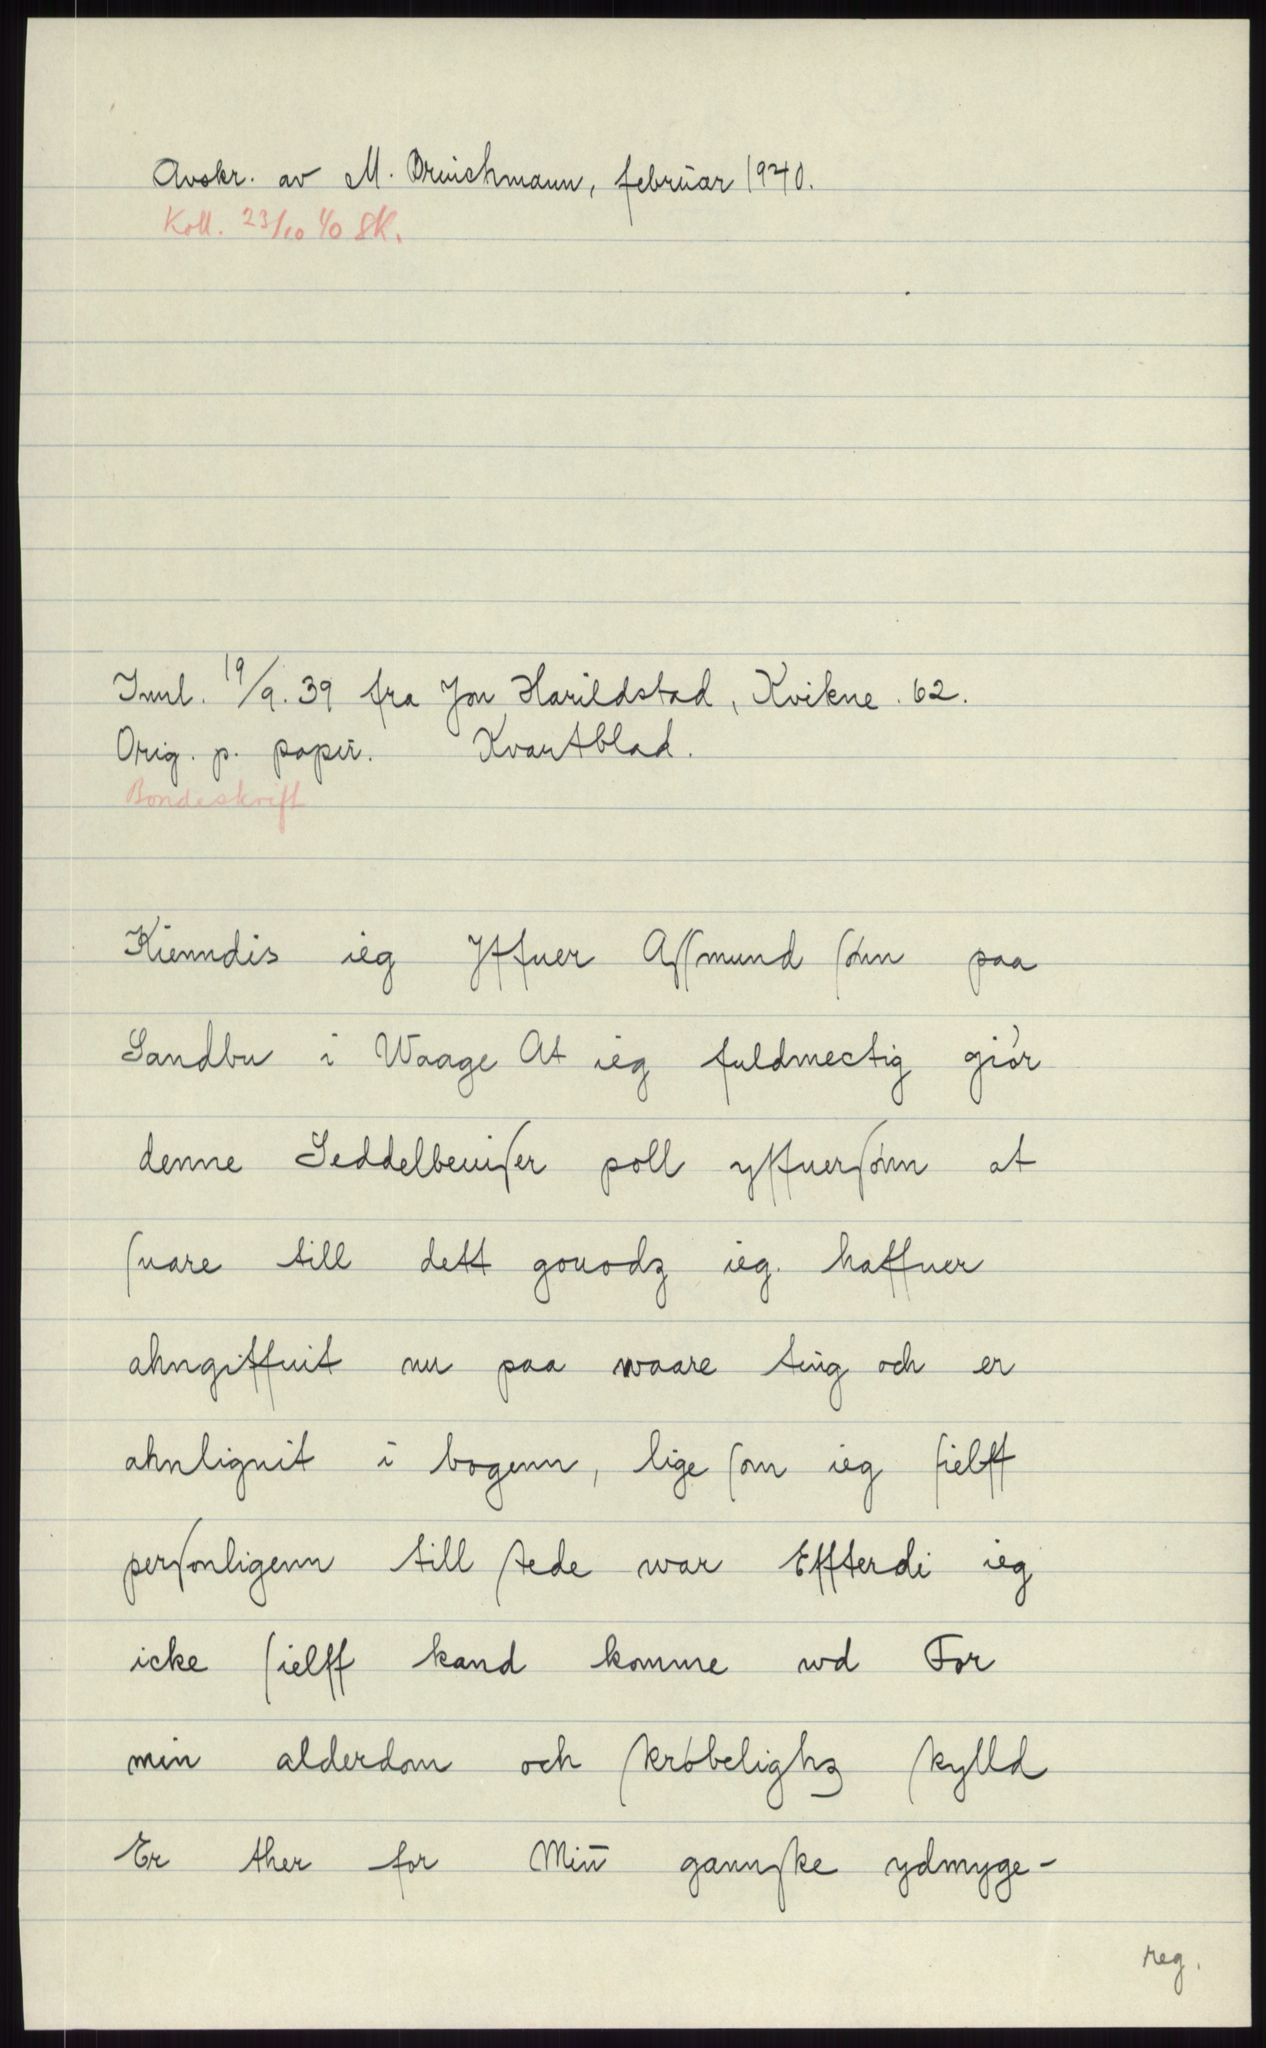 Avskr. av M. Brinchmann, februar 1940.
Koll. 23/10 40 SK.
Innl. 19/9. 39 fra Jon Harildstad, Kvikne. 62.
Orig. p. papir. Kvartblad.
Bondeskrift
Kienndis ieg Yffuer Aſſmund ſønn paa
Sandbu i Waage At ieg fuldmectig giør
denne Seddelbeuiſer poll yffuerſønn at
ſuare till dett gouodz ieg haffuer
ahngiffuit nu paa waare ting och er
ahnlignit i bogenn, lige ſom ieg ſielff
perſonligenn till ſtede war Effterdi ieg
icke ſielff kand komme wd For
min alderdom och ſkrøbelighz ſkylld
Er ther for Min̄ gannſke ydmyge-
reg.